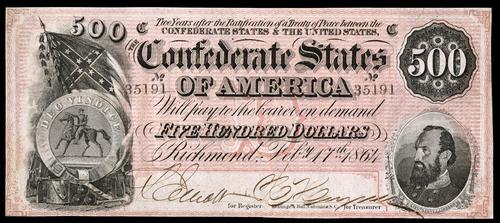 500 C Two Years after the Ratification of a Treaty of Peace between the C
CONFEDERATE STATES & THE UNITED STATES,
THE Confederate States 500
No 35191 OF AMERICA No 35191
Will pay to the bearer on demand
FIVE HUNDRED DOLLARS
Richmond, Feby 17th 1864
DEO VINDICE
for Register Keatinge & Ball, Columbia, S.C. for Treasurer